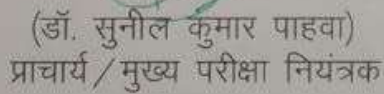 (डॉ. सुनील कुमार पाहवा)
प्राचार्य / मुख्य परीक्षा नियंत्रक